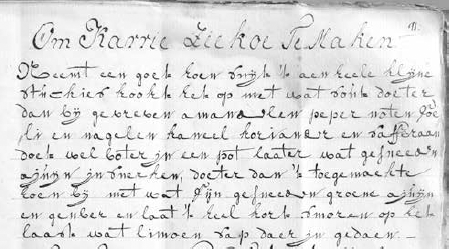 Om Karrie Ziekoe Te Maken
Neemt een goet hoen snijt 't aen heele klijne
stuckies kookt het op met wat sout doeter
dan bij gevreven amandelen peper noten foe
li en nagelen kaneel korjander en saffraan
doet wel boter in een pot laater wat gesneeden
ajuijn in sweeten, doeter dan 't toegemaeckte
hoen bij met wat fijn gesneeden groene ajuijn
en genber en laat 't heel kort smoren op het
laast wat limoen sap daer in gedaen.